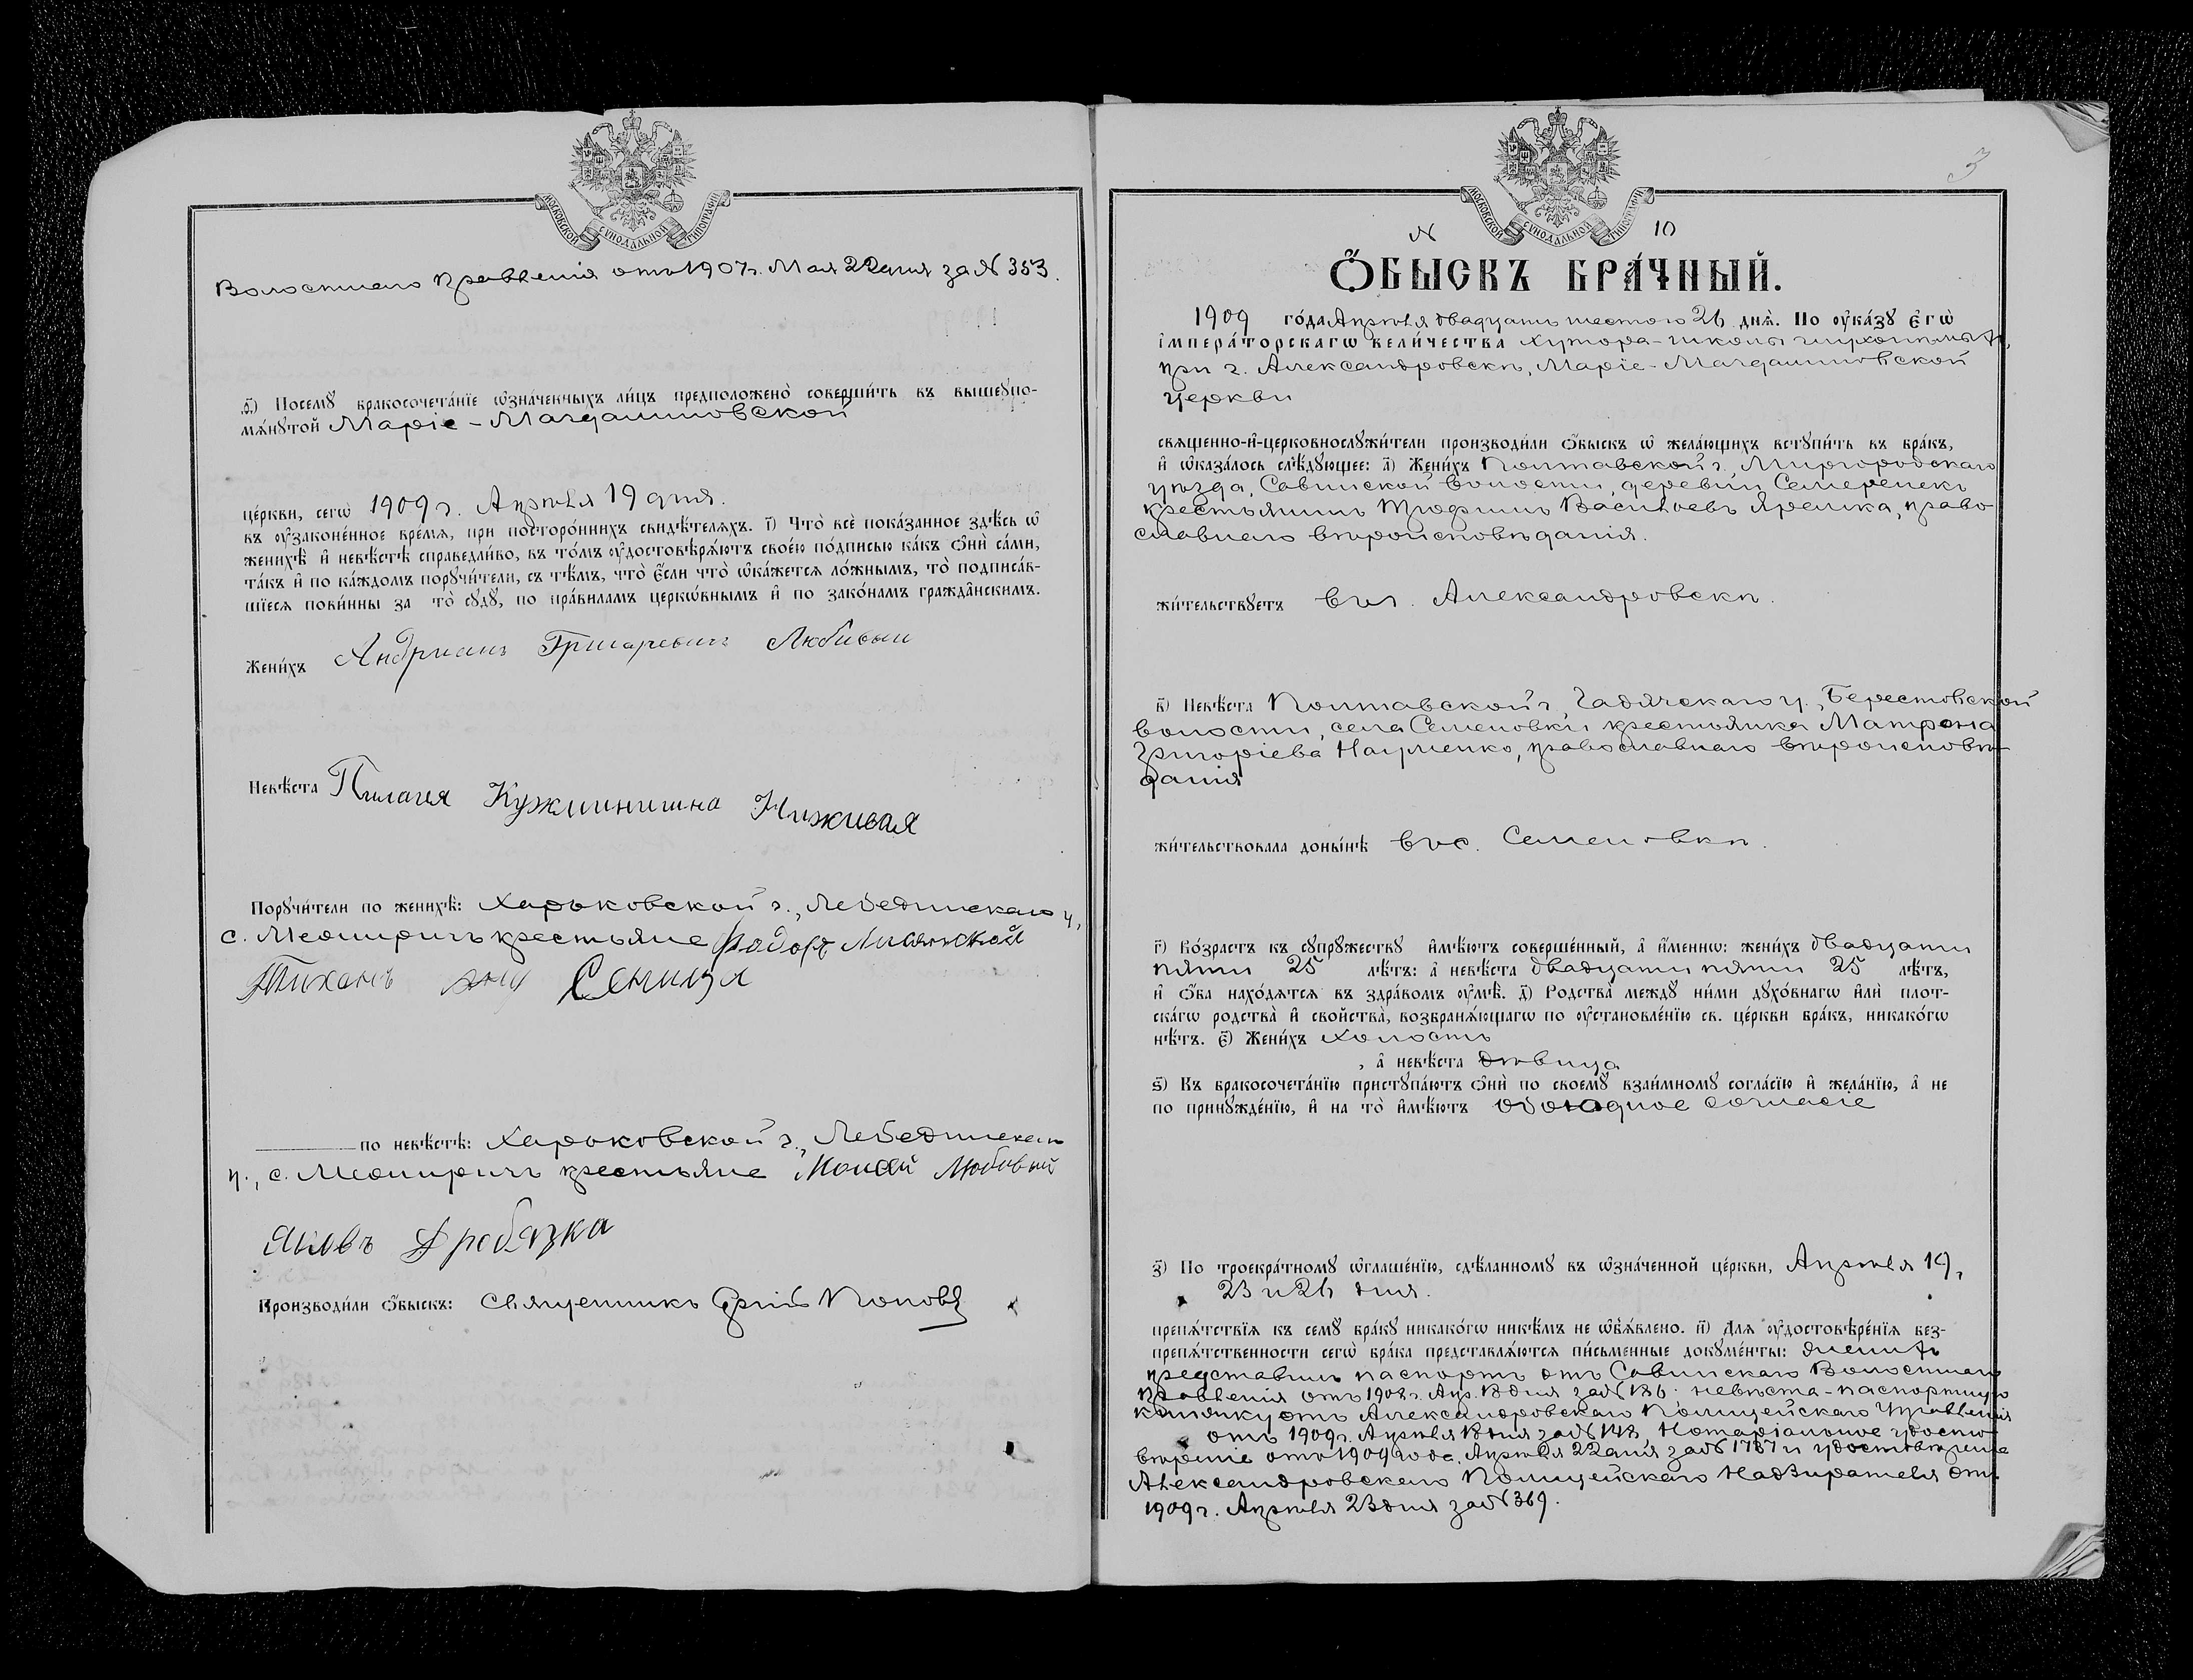 МОСКОВСКОЙ СѴНОДАЛЬНОЙ ТИПОГРАФІИ
Волостнаго Правленія отъ 1907 г. Мая 22 дня за № 353.
ѳ҃) Посемꙋ бракосочета́нїе ѡ҆зна́ченныхъ ли́цъ предположено̀ соверши́ть въ вышеꙋпо-
мѧ́нꙋтой Маріе-Магдалиновской
це́ркви, сегѡ̀ 1909 г. Апрѣля 19 дня.
въ ᲂу҆законе́нное вре́мѧ, при посторо́ннихъ свидѣ́телѧхъ. і҃) Что̀ всѐ пока́занное здѣ́сь ѡ҆
женихѣ̀ и҆ невѣ́стѣ справедли́во, въ то́мъ ᲂу҆достовѣрѧ́ютъ свое́ю по́дписью ка́къ ѻ҆нѝ са́ми,
та́къ и҆ по ка́ждомъ порꙋчи́тели, съ тѣ́мъ, что̀ є҆́сли что̀ ѡ҆ка́жетсѧ ло́жнымъ, то̀ подписа́в-
шїесѧ пови́нны за то̀ сꙋдꙋ̀, по пра́виламъ церкѡ́внымъ и҆ по зако́намъ гражда̑нскимъ.
Жени́хъ Андрианъ Григаревичъ Любивый
Невѣ́ста Пилагия Кужминишна Ниживая
Порꙋчи́тели по женихѣ̀: Харьковской г., Лебединскаго у,
с. Межиричъ крестьяне Фодоръ Лисянской
Тиханъ Сеница
по невѣ́стѣ: Харьковской г., Лебединскаго
у., с. Межиричъ крестьяне Моисей Любивый
Яковъ Дробязка
Производи́ли ѻ҆́быскъ: Священникъ Поповъ
3
МОСКОВСКОЙ СѴНОДАЛЬНОЙ ТИПОГРАФІИ
№ 10
Ѻ҆́БЫСКЪ БРА́ЧНЫЙ.
1909 го́да Апрѣля двадцать шестого 26 днѧ̀. По ᲂу҆ка́зꙋ є҆гѡ̀
і҆мпера́торскагѡ вели́чества хутора-школы глухонѣмыхъ,
при г. Александровскѣ, Маріе-Магдалиновской
церкви
свѧщенно-и҆-церковнослꙋжи́тели производи́ли ѻ҆́быскъ ѡ҆ жела́ющихъ встꙋпи́ть въ бра́къ,
и҆ ѡ҆каза́лось слѣ́дꙋющее: а҃) Жени́хъ Полтавской г. Миргородскаго
уѣзда, Савинской волости, деревни Семеренекъ
крестьянинъ Трофимъ Васильевъ Яремка, право-
славнаго вѣроисповѣданія.
жи́тельствꙋетъ въ г. Александровскѣ.
в҃) Невѣ́ста Полтавской г, Гадячскаго у., Берестовской
волости, села Семеновки крестьянка Матрона
Григоріева Науменко, православнаго вѣроисповѣ-
данія
жи́тельствовала доны́нѣ въ с. Семеновкѣ.
г҃) Во́зрастъ къ сꙋпрꙋ́жествꙋ и҆мѣ́ютъ соверше́нный, а҆ и҆́менно: жени́хъ двадцати
пяти 25 лѣ́тъ: а҆ невѣ́ста двадцати пяти 25 лѣ́тъ,
и҆ ѻ҆́ба нахо́дѧтсѧ въ здра́вомъ ᲂу҆мѣ̀. д҃) Родства̀ междꙋ̀ ни́ми дꙋхо́внагѡ и҆лѝ плот-
ска́гѡ родства̀ и҆ свойства̀, возбранѧ́ющагѡ по ᲂу҆становле́нїю св. це́ркви бра́къ, никако́гѡ
нѣ́тъ. є҃) Жени́хъ холостъ
, а҆ невѣ́ста дѣвица
ѕ҃) Къ бракосочета́нїю пристꙋпа́ютъ ѻ҆нѝ по своемꙋ̀ взаи́мномꙋ согла́сїю и҆ жела́нїю, а҆ не
по принꙋжде́нїю, и҆ на то̀ и҆мѣ́ютъ обоюдное согласіе
з҃) По троекра́тномꙋ ѡ҆глаше́нїю, сдѣ́ланномꙋ въ ѡ҆зна́ченной це́ркви, Апрѣля 19,
23 и 26 дня.
препѧ́тствїѧ къ семꙋ̀ бра́кꙋ никако́гѡ никѣ́мъ не ѡ҆бъѧ́влено. и҃) Длѧ ᲂу҆достовѣре́нїѧ без-
препѧ́тственности сегѡ̀ бра́ка представлѧ́ютсѧ пи́сьменные докꙋме́нты: женихъ
представилъ паспортъ отъ Савинскаго Волостнаго
Правленія отъ 1908 г. Апр. 18 дня за № 186. невѣста - паспортную
книжку отъ Александровскаго Полицейскаго Управленія
отъ 1909 г. Апрѣля 18 дня за № 148, Нотаріальное удосто-
вѣреніе отъ 1909 года, Апрѣля 22 дня за № 1787 и удостовѣреніе
Александровскаго Полицейскаго Надзирателя отъ
1909 г. Апрѣля 23 дня за № 369.